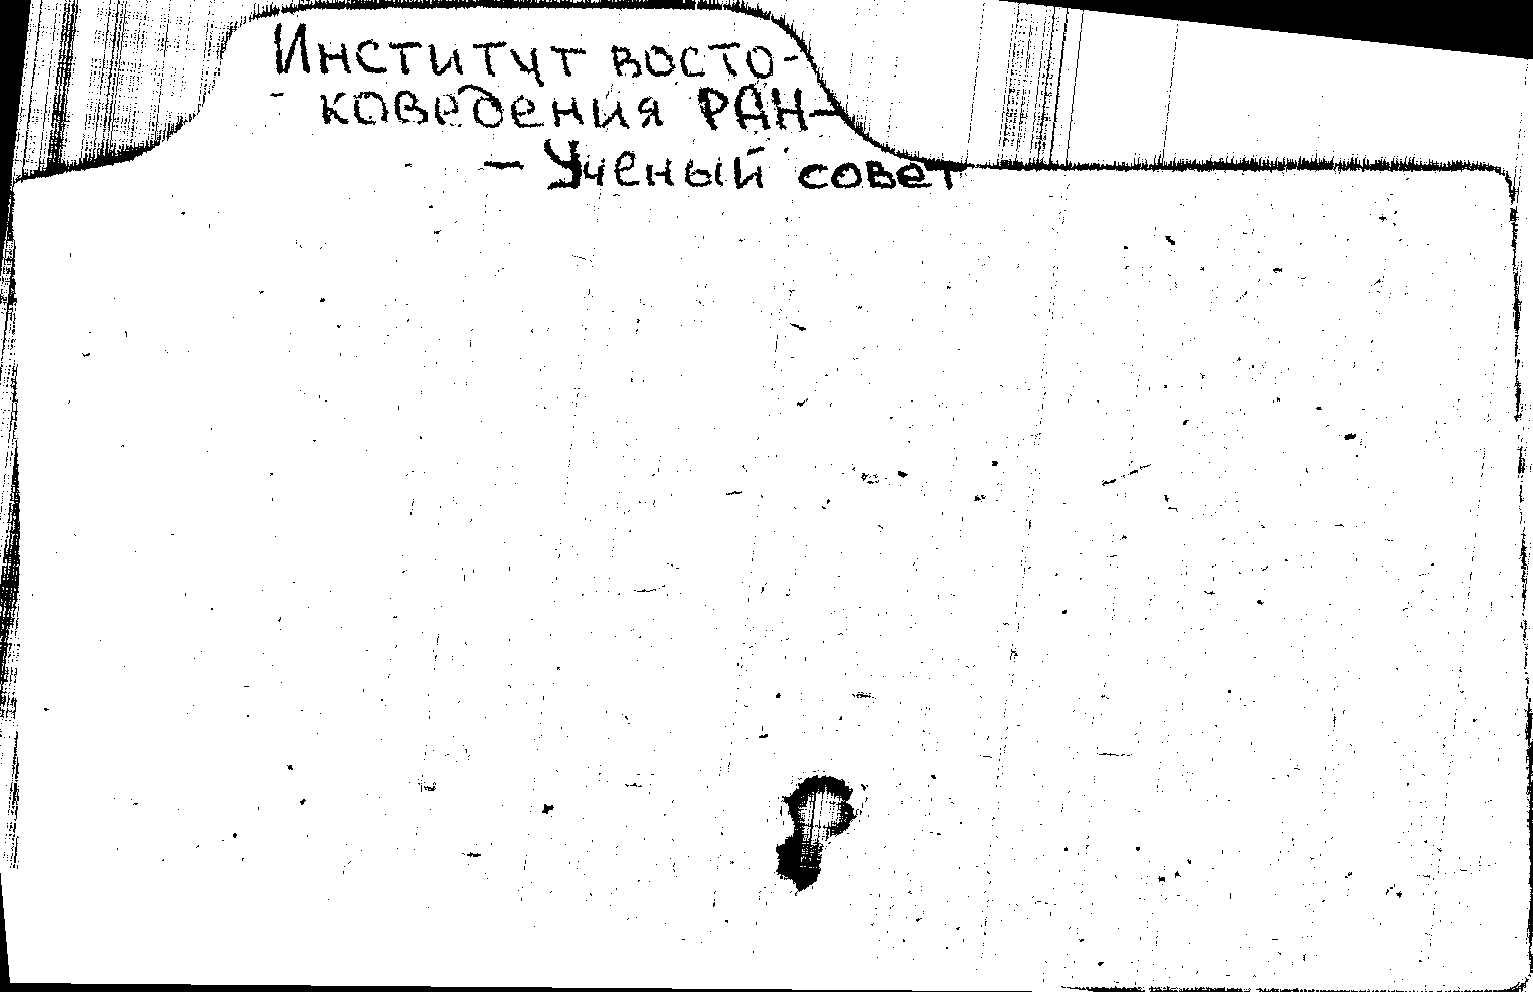 Институт восто-
коведения РАН—
— Ученый совет